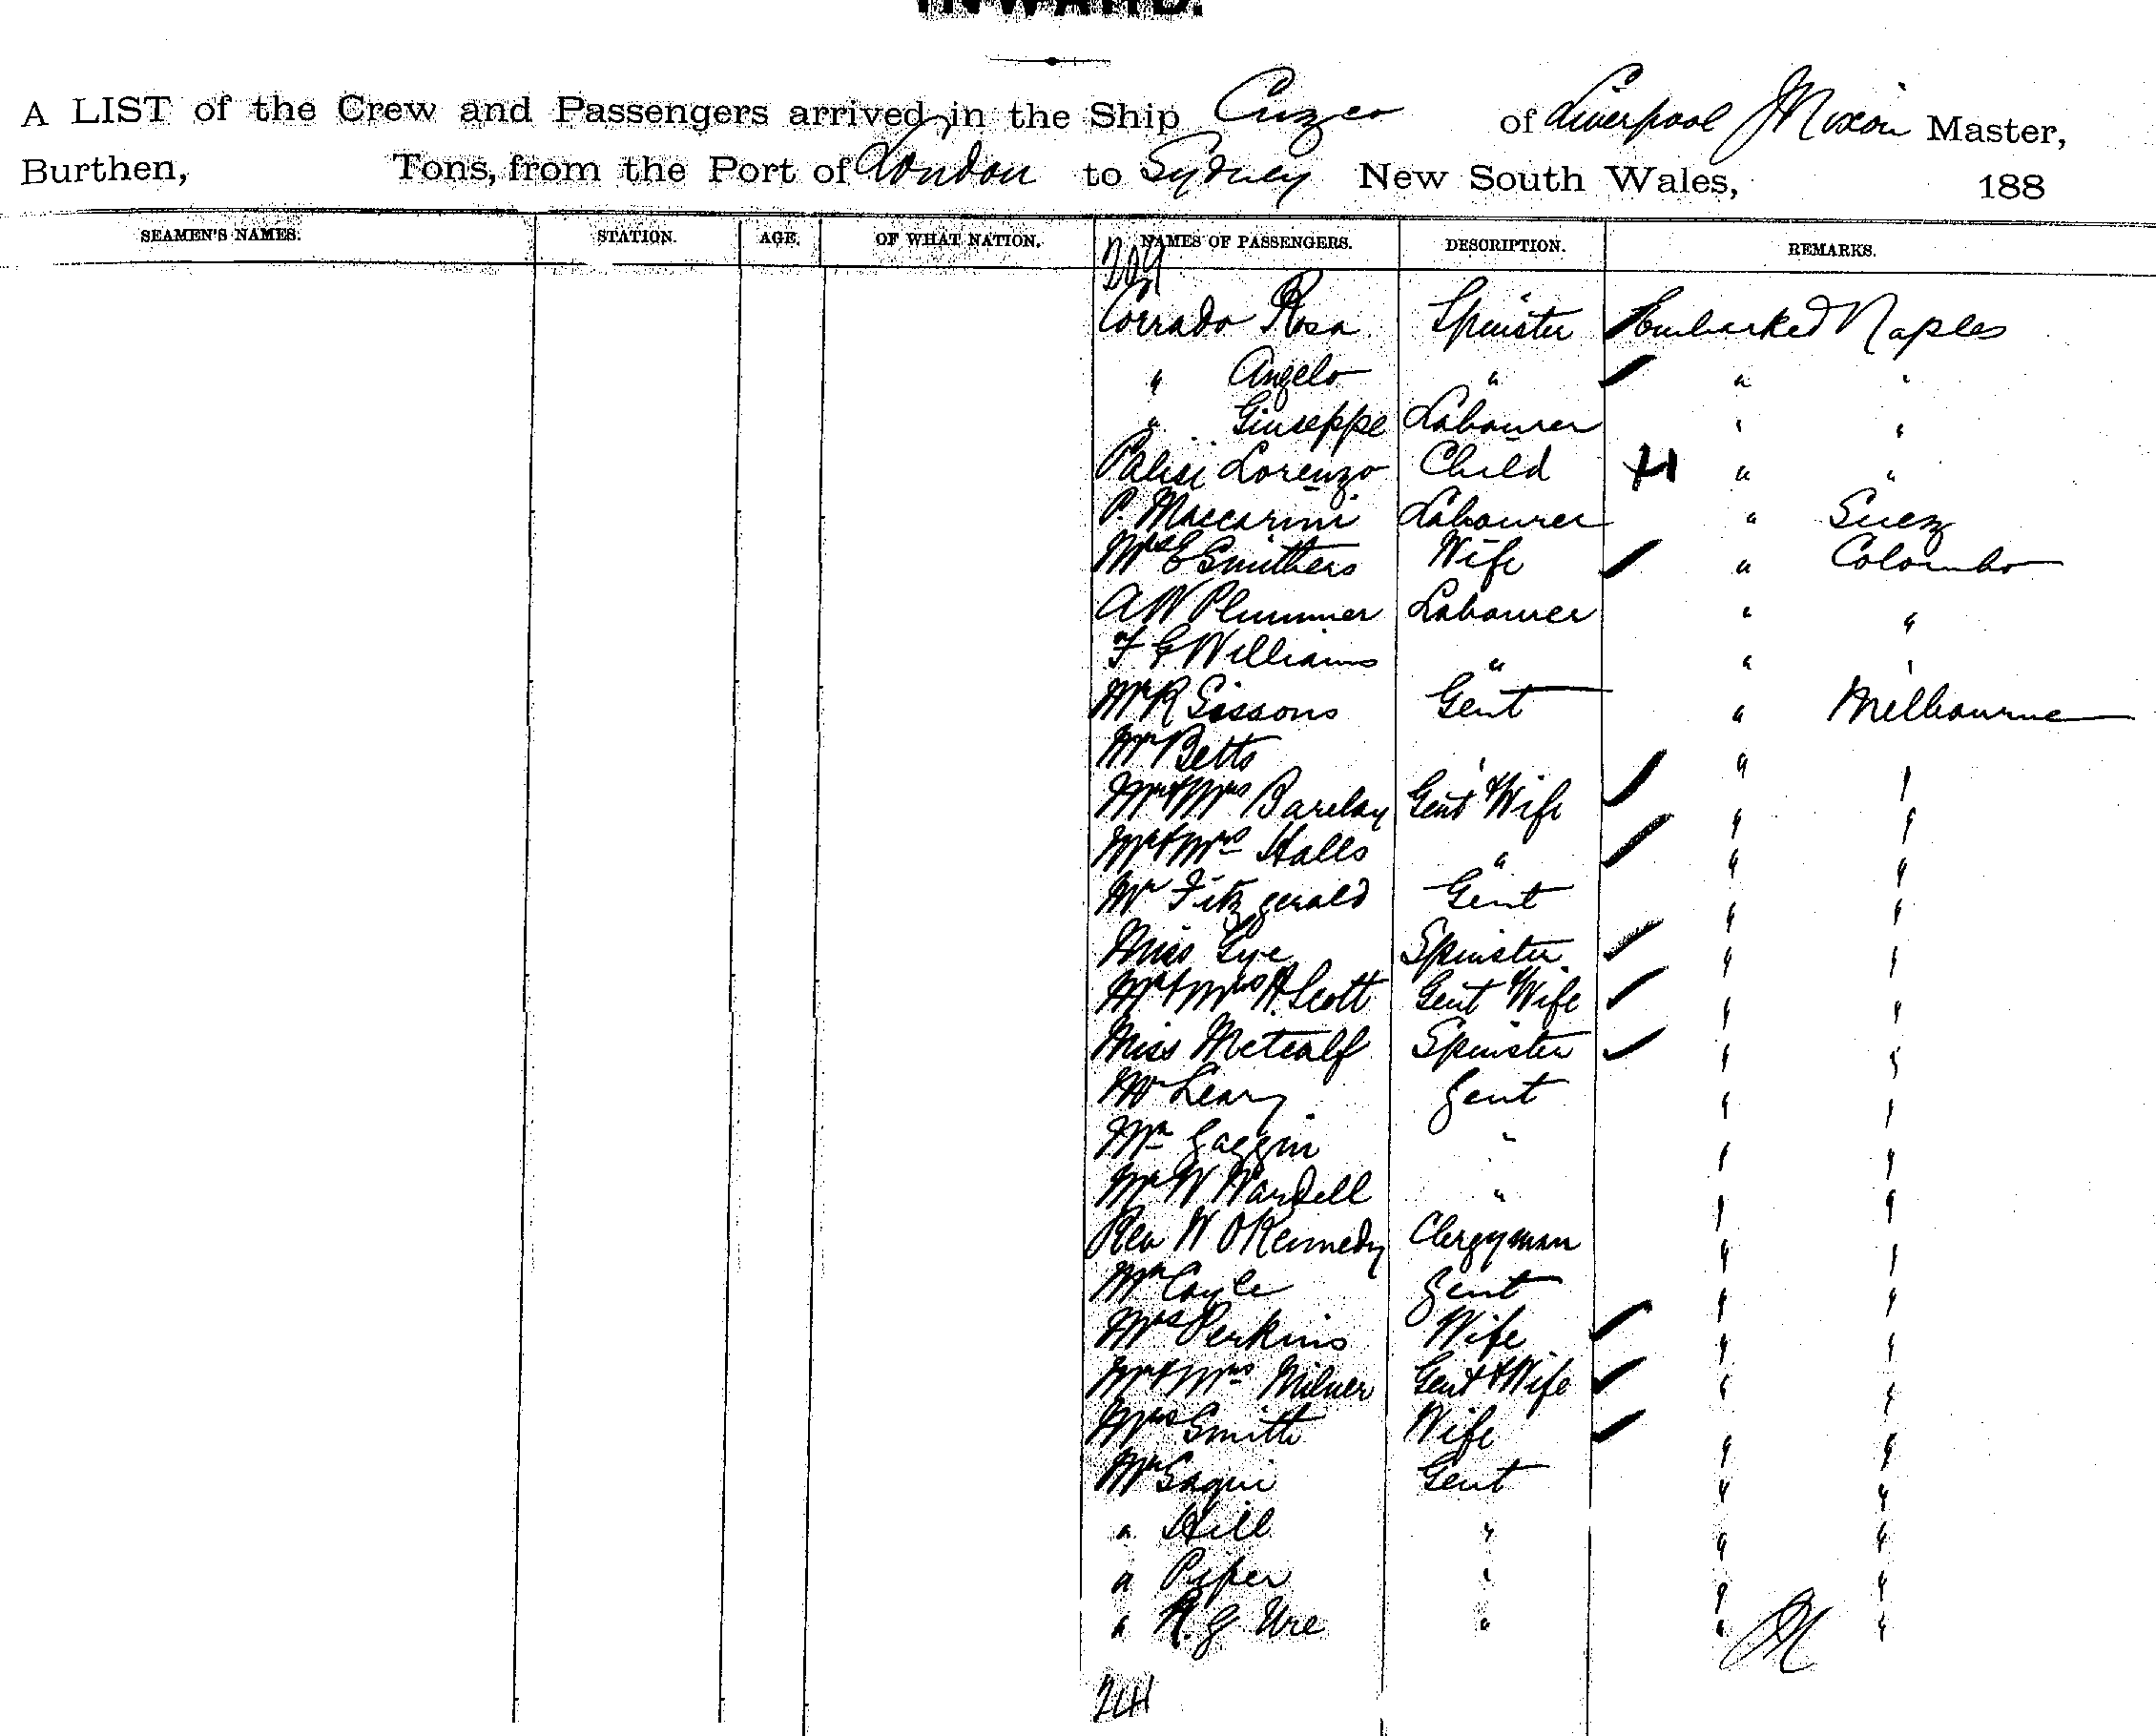 INWARD.
A LIST of the Crew and Passengers arrived in the Ship Cuzco of Liverpool J Nixon Master,
Burthen, Tons, from the Port of London to Sydney New South Wales, 188
SEAMEN'S NAMES. STATION. AGE. OF WHAT NATION. NAMES OF PASSENGERS. DESCRIPTION. REMARKS.
209
Corrado Rosa Spinster Embarked Naples
" Angelo " " "
" Giuseppe Labourer " "
Lorenzo Child " "
P. Maccarini Labourer " Suez
Mrs E Smithers Wife " Colombo
A W Plummer Labourer " "
F G Williams " " "
Mr R Sissons Gent " Melbourne
Mr Betts " " "
Mr & Mrs Barclay Gent & Wife " "
Mr & Mrs Halls " " "
Mr Fitzgerald Gent " "
Miss Gye Spinster " "
Mr & Mrs H Scott Gent & Wife " "
Miss Metcalf Spinster " "
Mr Leary Gent " "
Mr Gaggin " " "
Mr W Wardell " " "
Rev W O Kennedy Clergyman " "
Mr Coyle Gent " "
Mrs Perkins Wife " "
Mr & Mrs Milner Gent & Wife " "
Mrs Smith Wife " "
Mr Saqui Gent " "
" Hill " " "
" Piper " " "
" R. G Ure " " "
241